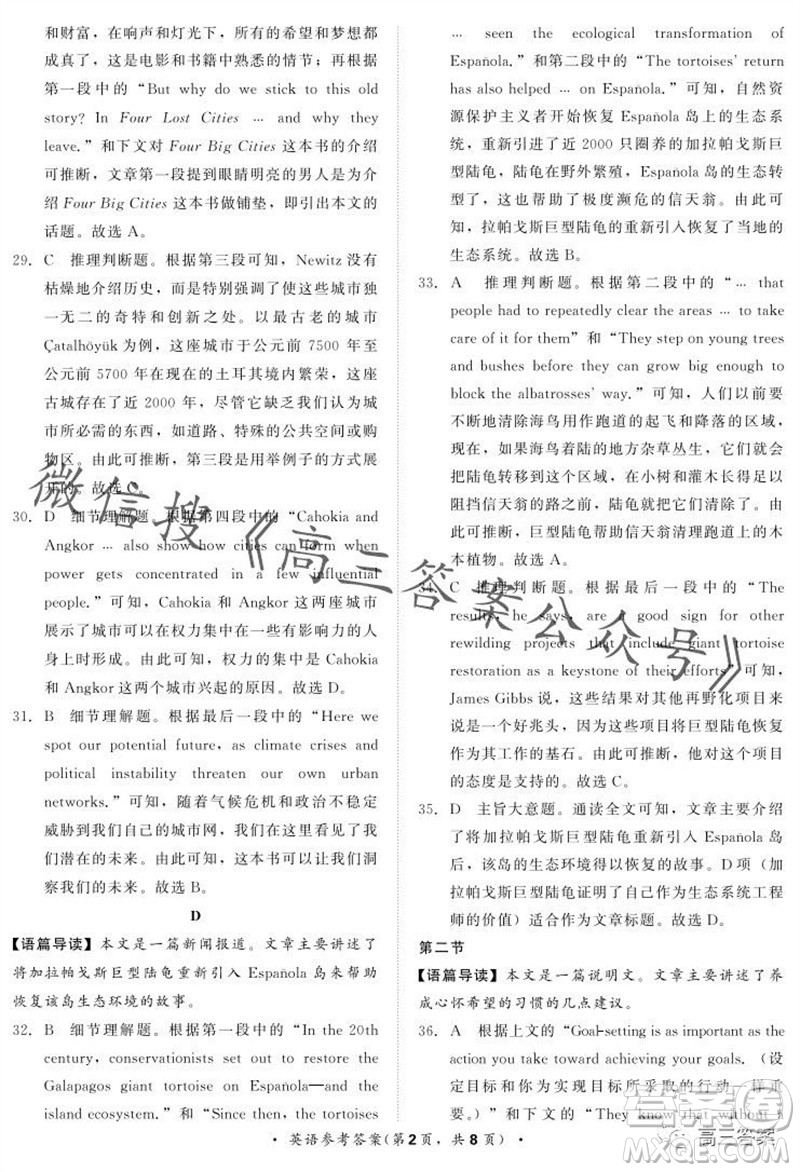 和财富，在响声和灯光下，所有的希望和梦想都
成真了，这是电影和书籍中熟悉的情节；再根据
第一段中的“But why do we stick to this old
story? In Four Lost Cities … and why they
leave.”和下文对 Four Big Cities 这本书的介绍
可推断，文章第一段提到眼睛明亮的男人是为介
绍 Four Big Cities 这本书做铺垫，即引出本文的
话题。故选 A。
29. C 推理判断题。根据第三段可知，Newitz 没有
枯燥地介绍历史，而是致力于使这些城市独
一无二的奇特和创新之处。以最古老的城市
Çatalhöyük 为例，这座城市于公元前 7500 年至
公元前 5700 年在现在的土耳其境内繁荣，这座
古城存在了近 2000 年，尽管它缺少我们认为城
市所必需的东西，如道路、特殊的公共空间或购
物区。由此可推断，第三段是用举例子的方式展
开的。故选 C。
30. D 细节理解题。根据第四段中的“Cahokia and
Angkor … also show how cities can form when
power gets concentrated in a few influential
people.”可知，Cahokia 和 Angkor 这两座城市
展示了城市可以在权力集中在一些有影响力的人
身上时形成。由此可知，权力的集中是 Cahokia
和 Angkor 这两个城市兴起的原因。故选 D。
31. B 细节理解题。根据最后一段中的“Here we
spot our potential future, as climate crises and
political instability threaten our own urban
networks.”可知，随着气候危机和政治不稳定
威胁到我们自己的城市网，我们在这里发现了我
们潜在的未来。由此可知，这本书可以让我们洞
察我们的未来。故选 B。
D
【语篇导读】本文是一篇新闻报道。文章主要讲述了
将加拉帕戈斯巨型陆龟重新引入 Española 岛来帮助
恢复该岛生态环境的故事。
32. B 细节理解题。根据第一段中的“In the 20th
century, conservationists set out to restore the
Galapagos giant tortoise on Española—and the
island ecosystem.”和“Since then, the tortoises
… seen the ecological transformation of
Española.”和第二段中的“The tortoises' return
has also helped … on Española.”可知，自然资
源保护主义者开始恢复 Española 岛上的生态系
统，重新引进了近 2000 只圈养的加拉帕戈斯
巨型陆龟，陆龟在野外繁殖。此外，陆龟的回归
还帮助了极度濒危的信天翁。由此可
知，拉帕戈斯巨型陆龟的重新引入恢复了当地的
生态系统。故选 B。
33. A 推理判断题。根据第二段中的“… that
people had to repeatedly clear the areas … to take
care of it for them”和“They step on young trees
and bushes before they can grow big enough to
block the albatrosses' way.”可知，以前人们要
不断地清除海鸟用作跑道的起飞和降落的区域，
如果没有，海鸟着陆的地方杂草丛生，他们就会
把陆龟转移到这个区域，在小树和灌木长到足以
阻挡信天翁的路之前，陆龟会踩踏它们。由
此可推断，巨型陆龟帮助信天翁清理跑道上的木
本植物。故选 A。
34. C 推理判断题。根据最后一段中的“The
results, he says, are a good sign for other
rewilding projects that include giant tortoise
restoration as a keystone of their efforts”可知，
James Gibbs 说，这些结果对其他再野化项目是
一个好兆头，因为这些项目将巨型陆龟恢复
作为其工作的基石。由此可推断，他对这个项目
的态度是支持的。故选 C。
35. D 主旨大意题。通读全文可知，文章主要介绍
了将加拉帕戈斯巨型陆龟重新引入 Española 岛
后，该岛的生态环境得以恢复的故事。D 项（加
拉帕戈斯巨型陆龟证明了自己作为生态系统工程
师的价值）适合作为文章标题。故选 D。
第二节
【语篇导读】本文是一篇说明文。文章主要讲述了养
成心怀希望的习惯的几点建议。
36. A 根据上文的“Goal-setting is as important as the
action you take toward achieving your goals.（设
定目标和你为实现目标所采取的行动一样重
要。）”可知，A项“They know that without
·英语参考答案（第2页，共8页）·
微信搜《高三答案公众号》
高三答案